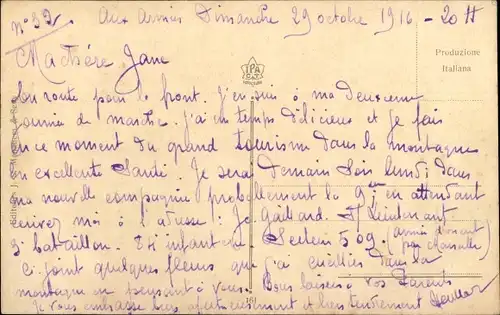 n° 32
Aux Armées Dimanche 29 octobre 1916 - 20 H
Ma chère Jane
IPA CT
Produzione
Italiana
En route pour le front. J'en suis à ma deuxième
journée de marche. J'ai un temps délicieux et je fais
en ce moment du grand tourisme dans la montagne
en excellente santé. Je serai demain soir lundi dans
ma nouvelle compagnie probablement la 9e, en attendant
écrivez moi à l'adresse : Je Gaillard. S/Lieutenant
3e bataillon. 84 infanterie. Secteur 509 (armée d'orient
par Marseille)
Ci joint quelques fleurs que j'ai cueillies dans la
montagne en pensant à vous. Bons baisers à vos Parents
Je vous embrasse bien affectueusement et bien tendrement
161